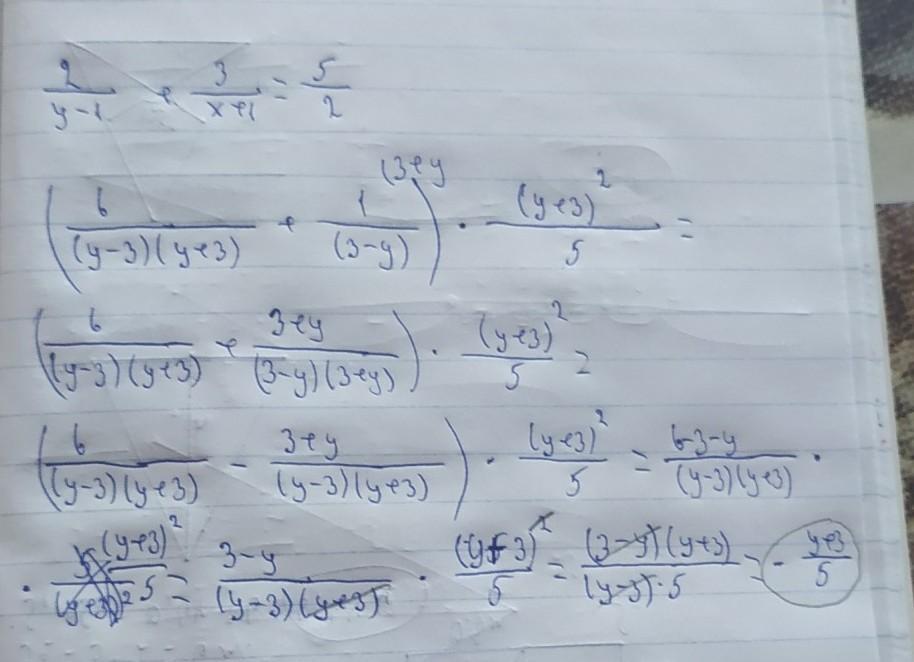 2/(y-1) + 3/(x+1) = 5/2
(3+y
(6/((y-3)(y+3)) + 1/(3-y)) · (y+3)²/5 =
(6/((y-3)(y+3)) + (3+y)/((3-y)(3+y))) · (y+3)²/5 =
(6/((y-3)(y+3)) - (3+y)/((y-3)(y+3))) · (y+3)²/5 = (6-3-y)/((y-3)(y+3)) ·
· (y+3)²/5 = (3-y)/((y-3)(y+3)) · (y+3)²/5 = (3-y)(y+3)/((y-3)·5) = - (y+3)/5